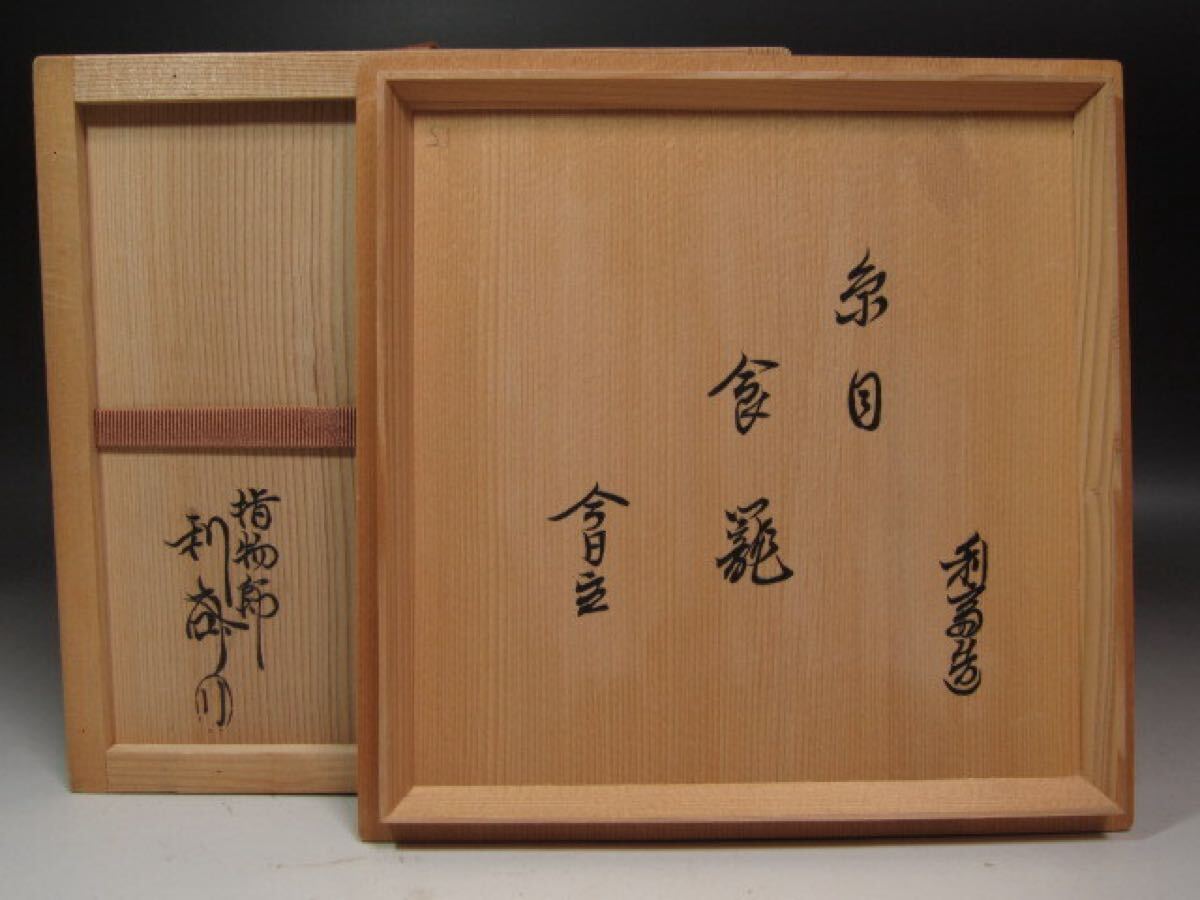 利斎造
糸目
食籠
今日立
指物師
利斎